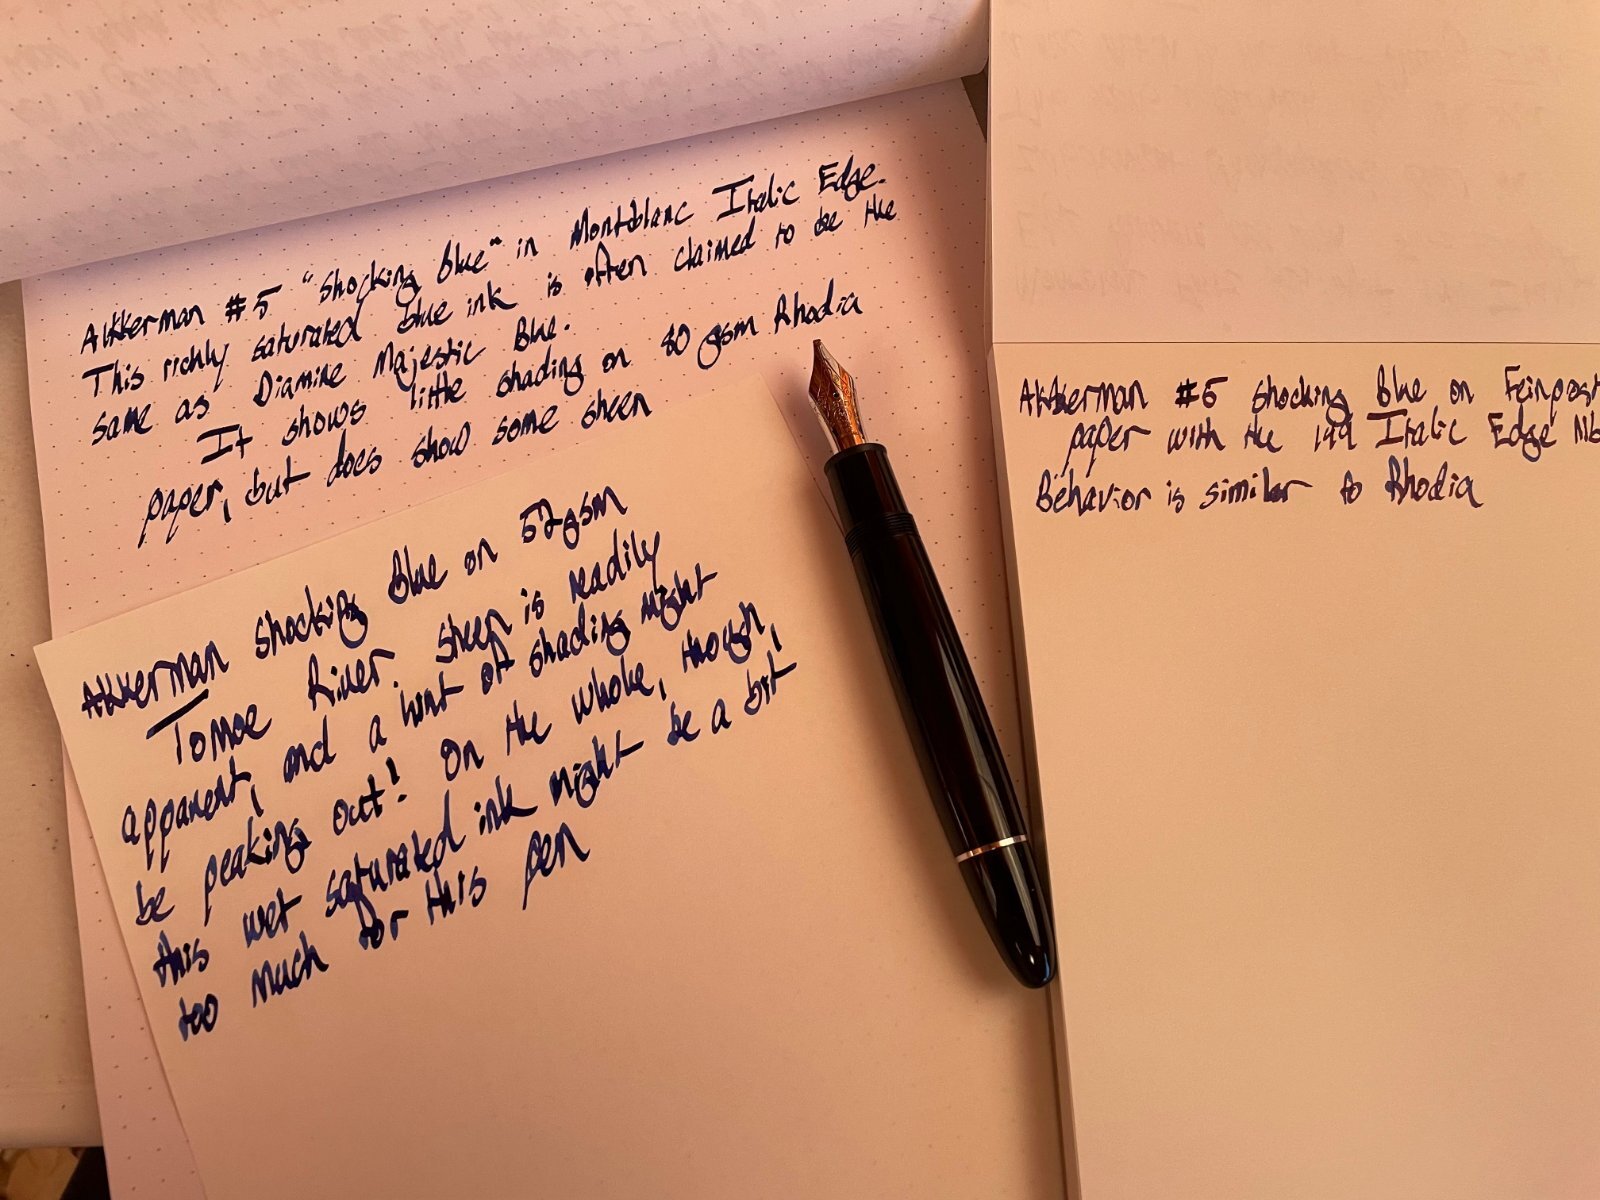 Akkerman #5 "Shocking Blue" in Montblanc Italic Edge.
This richly saturated blue ink is often claimed to be the
same as Diamine Majestic Blue.
It shows little shading on 80 gsm Rhodia
paper, but does show some sheen
Akkerman Shocking Blue on 52gsm
Tomoe River. Sheen is readily
apparent, and a hint of shading might
be peaking out! On the whole, though,
this wet saturated ink might be a bit
too much for this pen
Akkerman #5 Shocking Blue on Feinpost
paper with the 149 Italic Edge
Behavior is similar to Rhodia